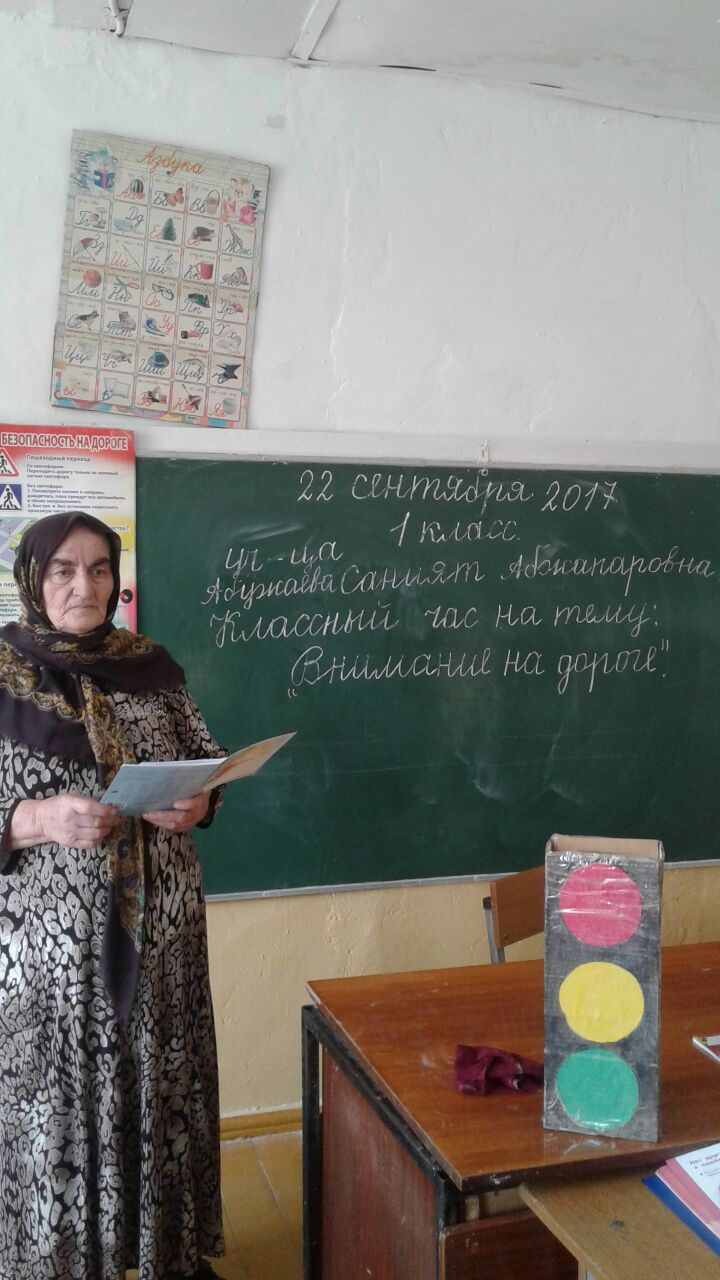 Азбука
Аа Бб Вв
Гг Дд Ее Ёё Жж
Зз Ии Йй Кк Лл
Мм Нн Оо Пп Рр
Сс Тт Уу Фф Хх
Цц Чч Шш Щщ ъ
ы ь Ээ Юю Яя
БЕЗОПАСНОСТЬ НА ДОРОГЕ
Пешеходный переход
Со светофором:
Переходить дорогу только на зеленый
сигнал светофора
Без светофора:
1. Посмотрите налево и направо,
дождитесь, пока проедут все автомобили,
в обоих направлениях.
2. Быстро и без остановок пересекать
проезжую часть
22 сентября 2017
1 класс.
уч-ца
Абужаева Саният Абжапаровна
Классный час на тему:
„Внимание на дороге".